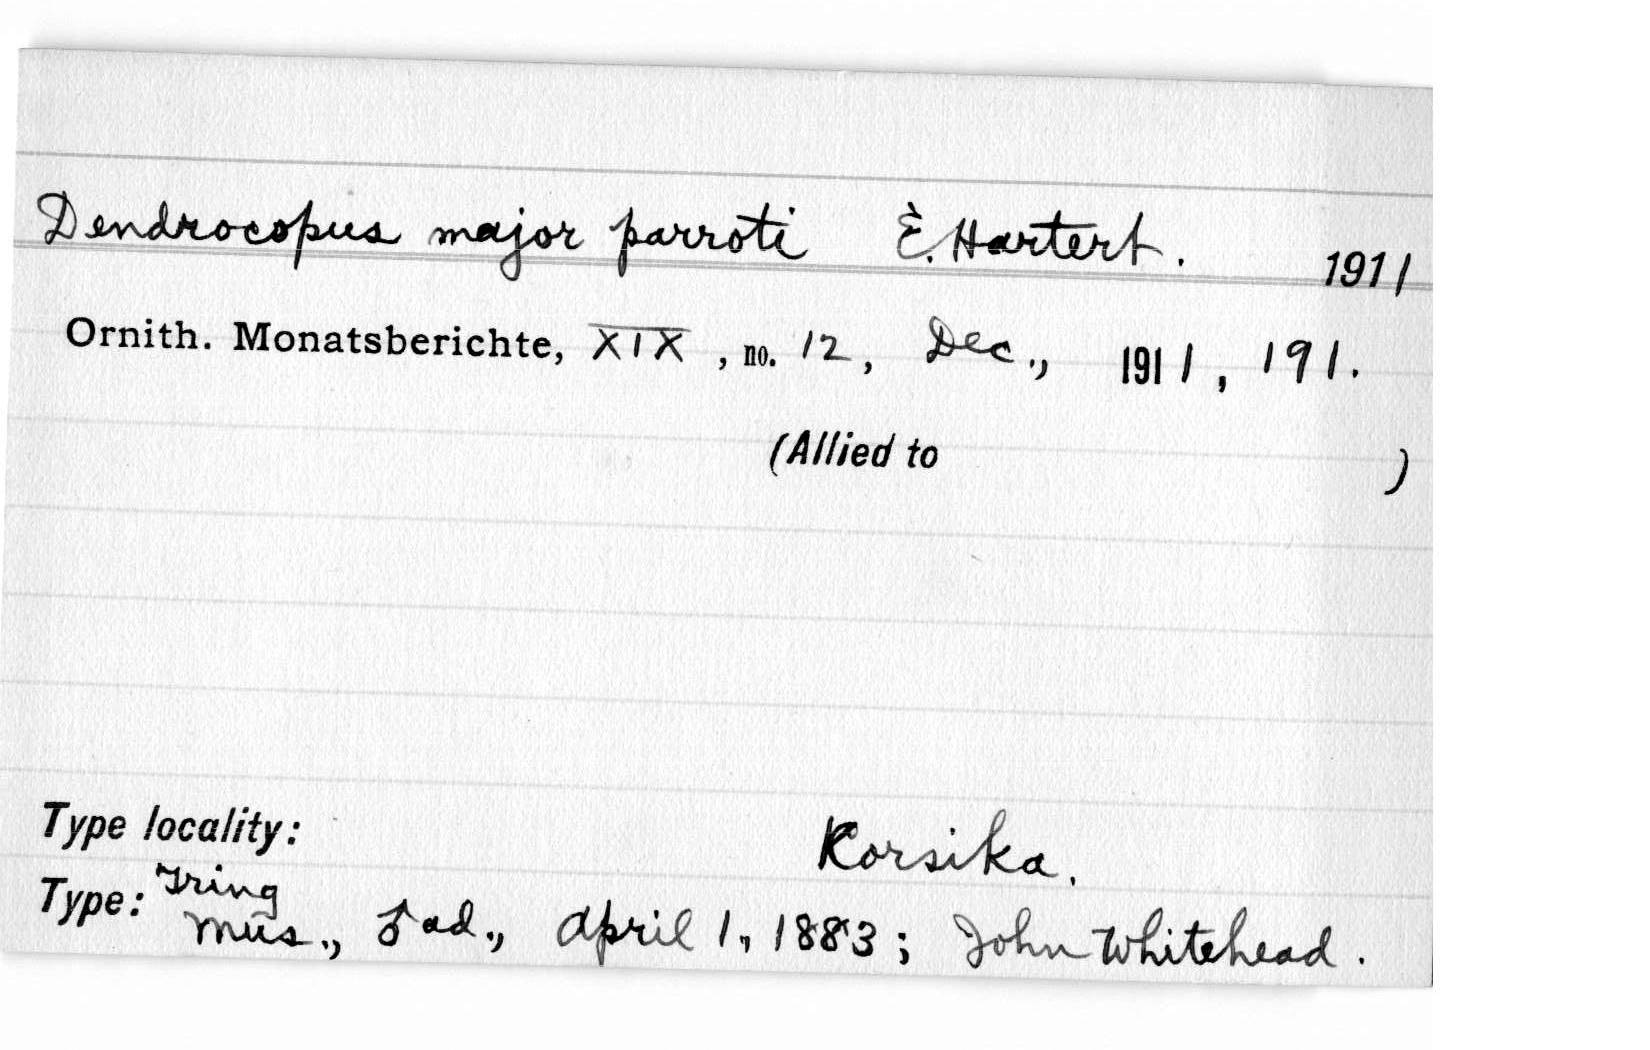 Dendrocopus major parroti E. Hartert. 1911
Ornith. Monatsberichte, XIX, no. 12, Dec., 1911, 191.
(Allied to )
Type locality: Korsika.
Type: Tring
Mus., ♂ ad., April 1, 1883; John Whitehead.